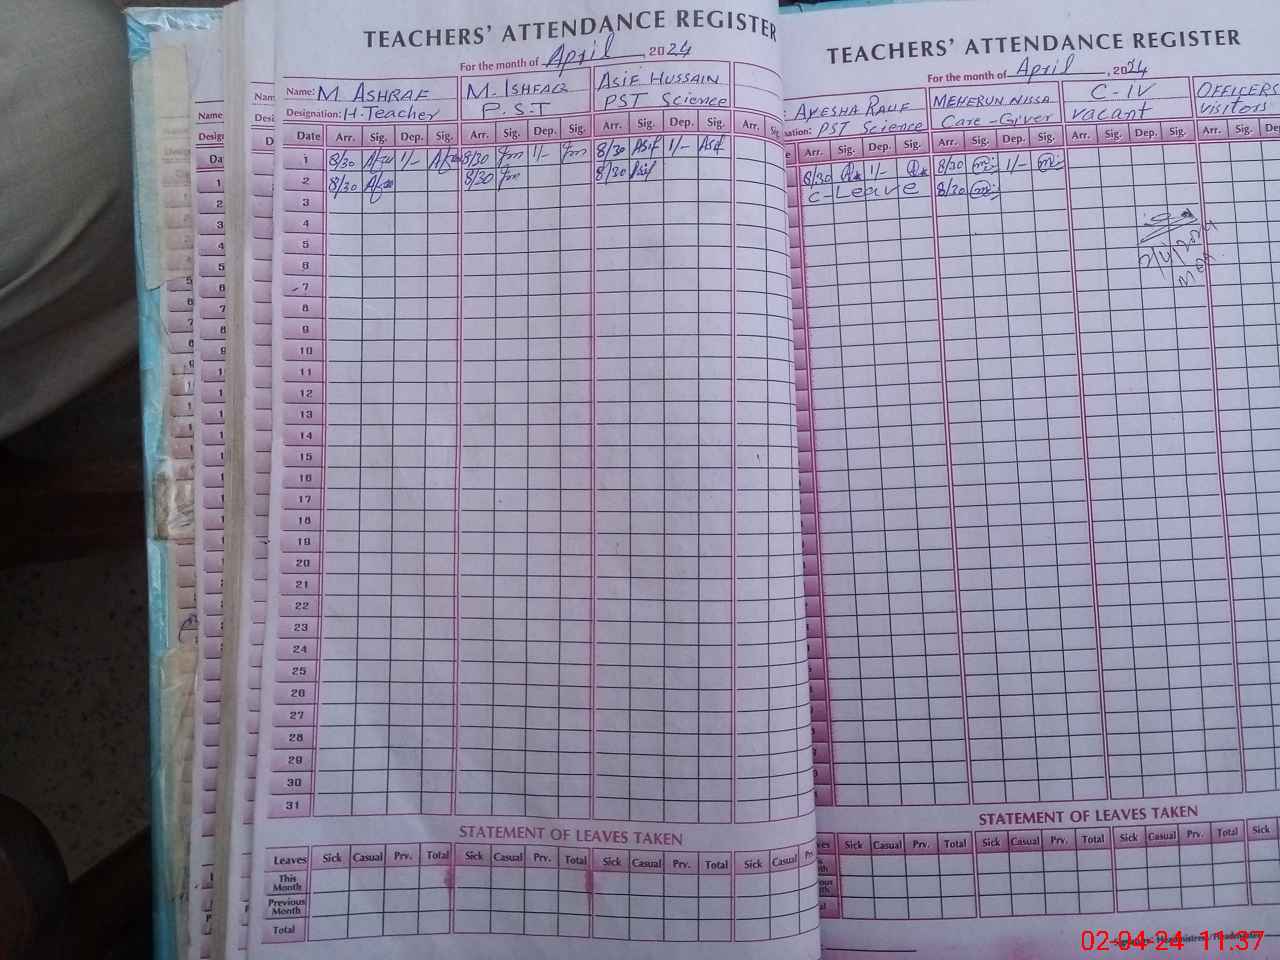 TEACHERS' ATTENDANCE REGISTER
For the month of April, 2024
Name: M. ASHRAF M. ISHFAQ ASIF HUSSAIN
Designation: H. Teacher P.S.T PST Science
Date Arr. Sig. Dep. Sig. Arr. Sig. Dep. Sig. Arr. Sig. Dep. Sig. Arr. Sig.
1 8/30 1/- 8/30 1/- 8/30 Asif 1/- Asif
2 8/30 8/30 8/30 Asif
3
4
5
6
7
8
9
10
11
12
13
14
15
16
17
18
19
20
21
22
23
24
25
26
27
28
29
30
31
STATEMENT OF LEAVES TAKEN
Leaves Sick Casual Prv. Total Sick Casual Prv. Total Sick Casual Prv. Total Sick Casual
This Month
Previous Month
Total
TEACHERS' ATTENDANCE REGISTER
For the month of April, 2024
AYESHA RAUF MEHERUN NISSA C-IV OFFICERS
PST Science Care-Giver vacant visitors
Arr. Sig. Dep. Sig. Arr. Sig. Dep. Sig. Arr. Sig. Dep. Sig. Arr. Sig.
8/30 1/- 8/30 1/-
C-Leave 8/30
2/4/2024
STATEMENT OF LEAVES TAKEN
Sick Casual Prv. Total Sick Casual Prv. Total Sick Casual Prv. Total Sick
02-04-24 11:37